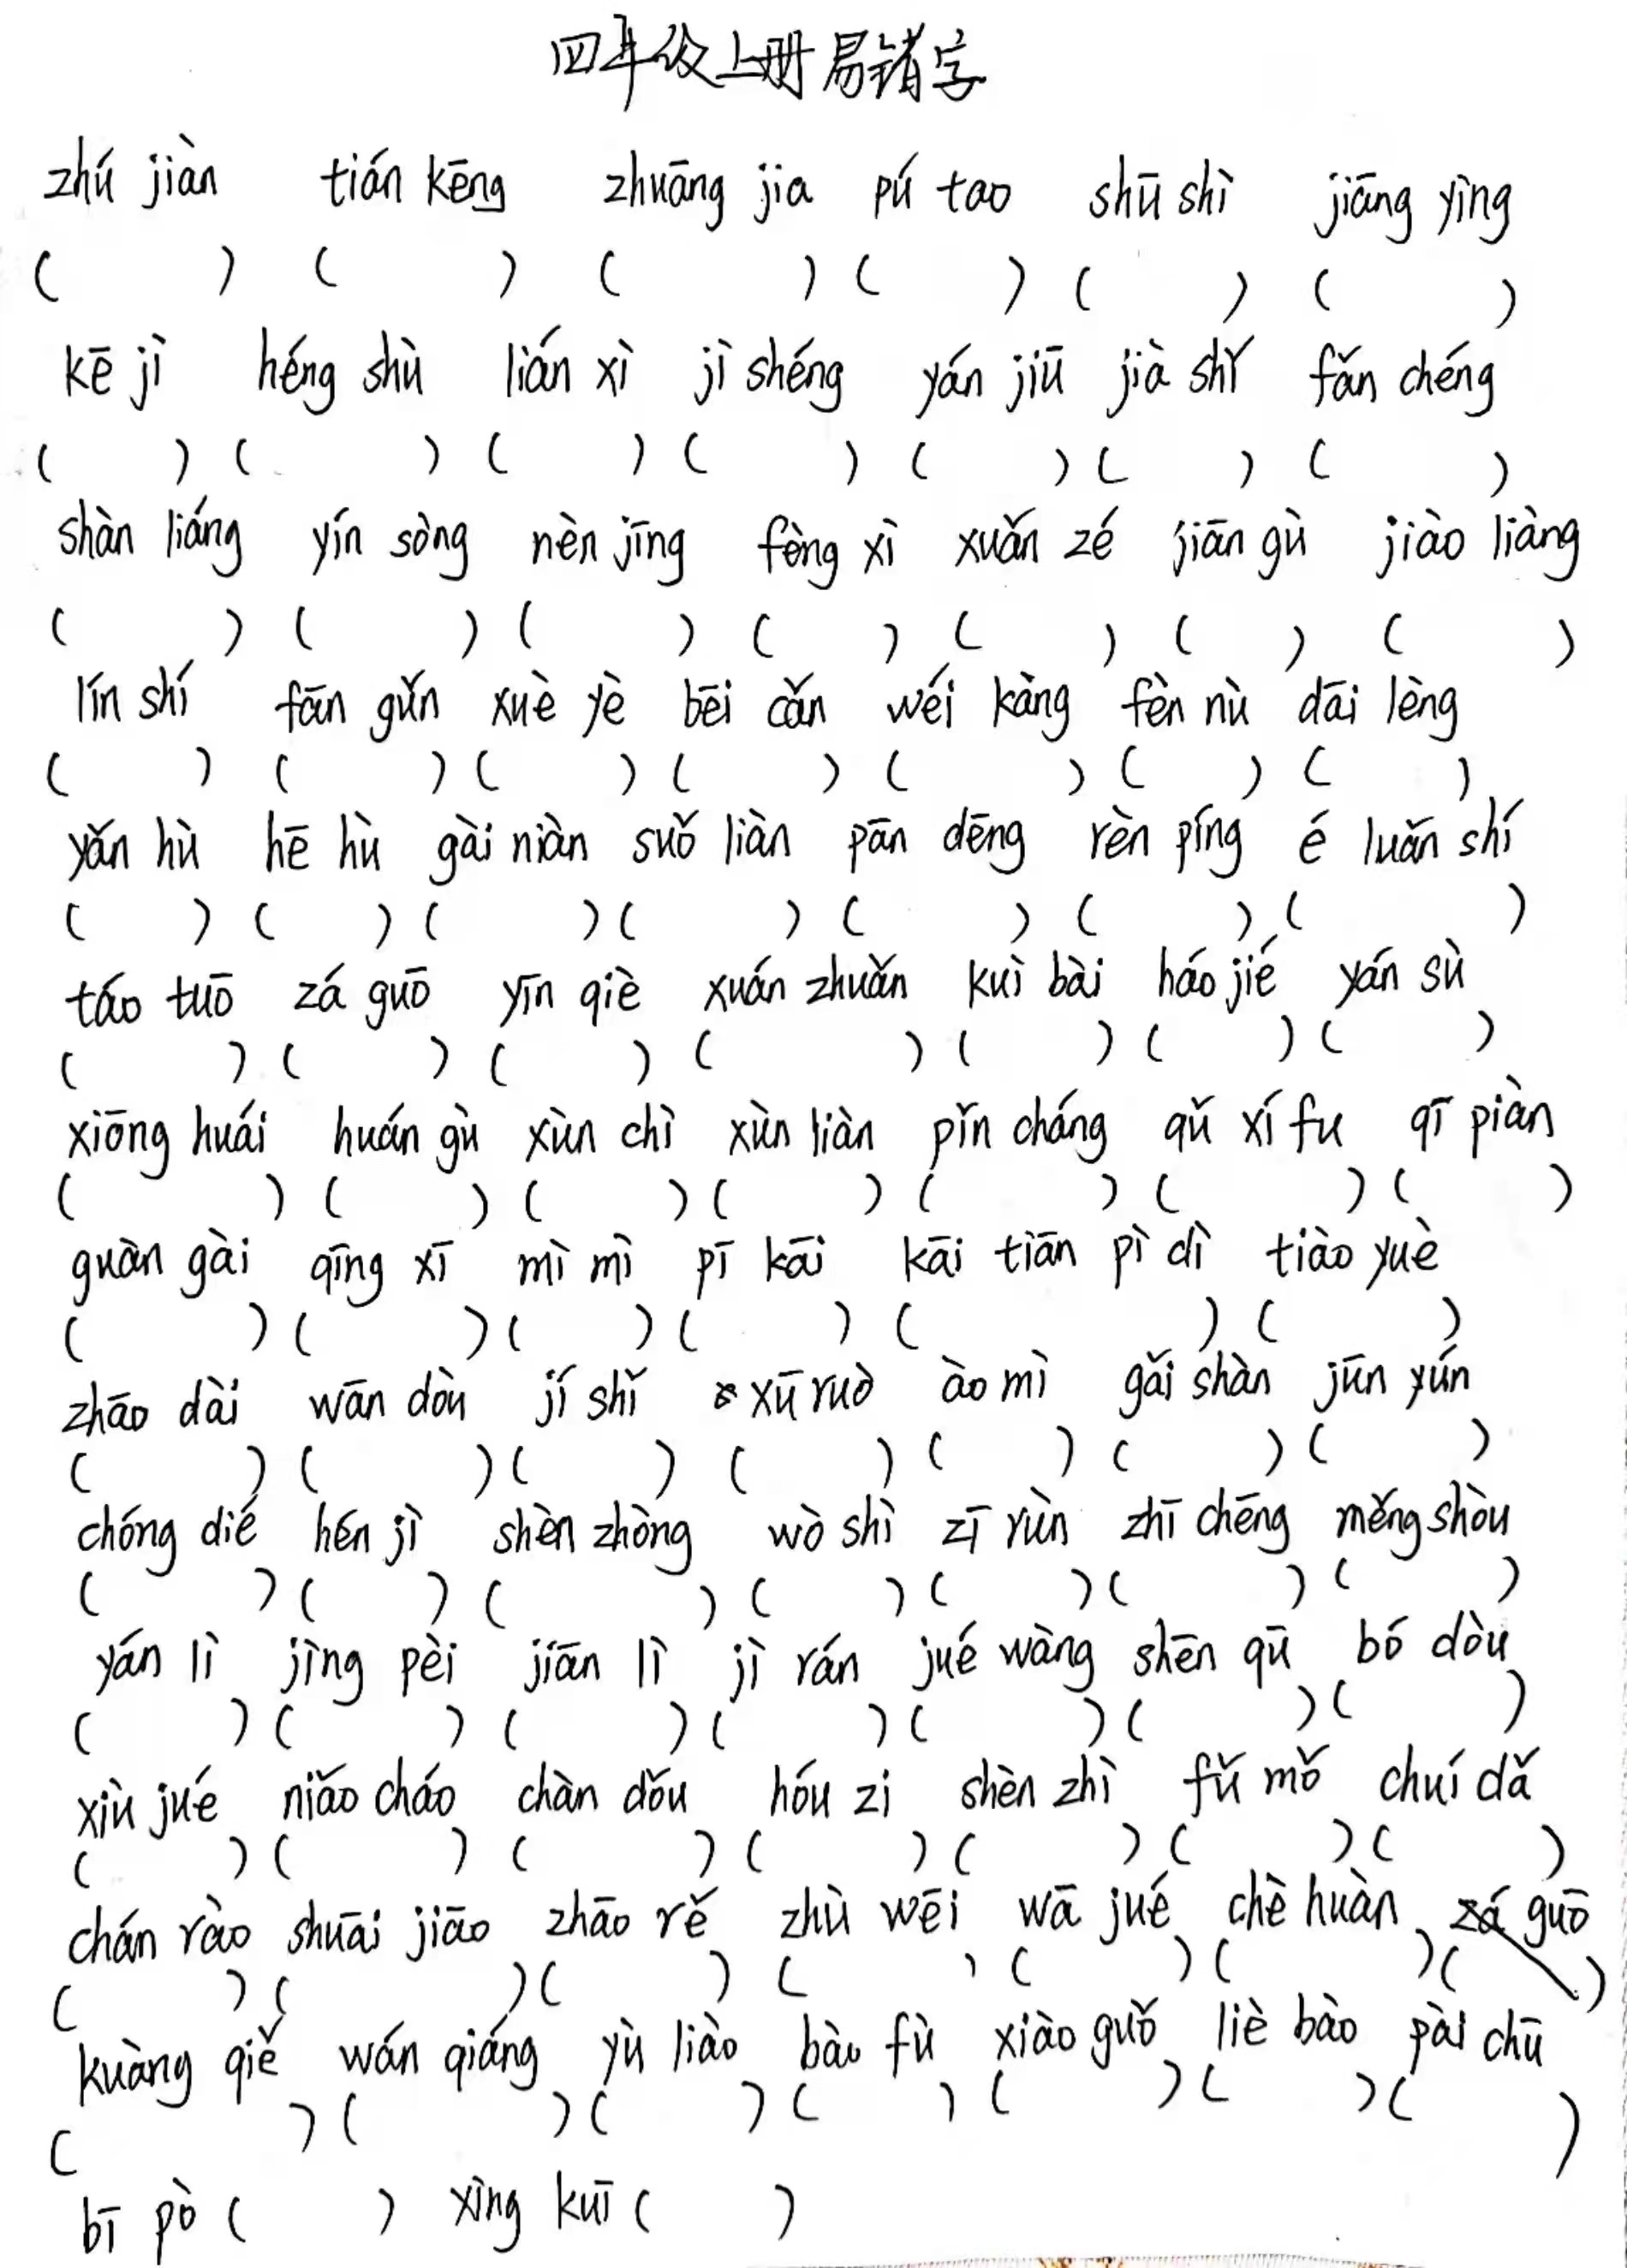 四年级上册易错字
zhú jiàn tián kēng zhuāng jia pú tao shū shì jiāng yìng
( ) ( ) ( ) ( ) ( ) ( )
kē jì héng shù lián xì jì shéng yán jiū jià shǐ fǎn chéng
( ) ( ) ( ) ( ) ( ) ( ) ( )
shàn liáng yín sòng nèn jīng fèng xì xuǎn zé jiān gù jiào liàng
( ) ( ) ( ) ( ) ( ) ( ) ( )
lín shí fān gǔn xuè yè bēi cǎn wéi kàng fèn nù dāi lèng
( ) ( ) ( ) ( ) ( ) ( ) ( )
yǎn hù hē hù gài niàn suǒ liàn pān dēng rèn píng é luǎn shí
( ) ( ) ( ) ( ) ( ) ( ) ( )
táo tuō zá guō yīn qiè xuán zhuǎn kuì bài háo jié yán sù
( ) ( ) ( ) ( ) ( ) ( ) ( )
xiōng huái huán gù xùn chì xùn liàn pǐn cháng qǔ xí fu qī piàn
( ) ( ) ( ) ( ) ( ) ( ) ( )
guàn gài qīng xī mì mì pī kāi kāi tiān pì dì tiào yuè
( ) ( ) ( ) ( ) ( ) ( )
zhāo dài wān dòu jí shǐ xū ruò ào mì gǎi shàn jūn yún
( ) ( ) ( ) ( ) ( ) ( ) ( )
chóng dié hén jì shèn zhòng wò shì zī rùn zhī chēng měng shòu
( ) ( ) ( ) ( ) ( ) ( ) ( )
yán lì jìng pèi jiān lì jì rán jué wàng shēn qū bó dòu
( ) ( ) ( ) ( ) ( ) ( ) ( )
xiù jué niǎo cháo chàn dǒu hóu zi shèn zhì fǔ mǒ chuí dǎ
( ) ( ) ( ) ( ) ( ) ( ) ( )
chán rào shuāi jiāo zhāo rě zhù wēi wā jué chè huàn zá guō
( ) ( ) ( ) ( ) ( ) ( ) ( )
kuàng qiě wán qiáng yù liào bào fù xiào guǒ liè bào pài chū
( ) ( ) ( ) ( ) ( ) ( ) ( )
bī pò ( ) xìng kuī ( )